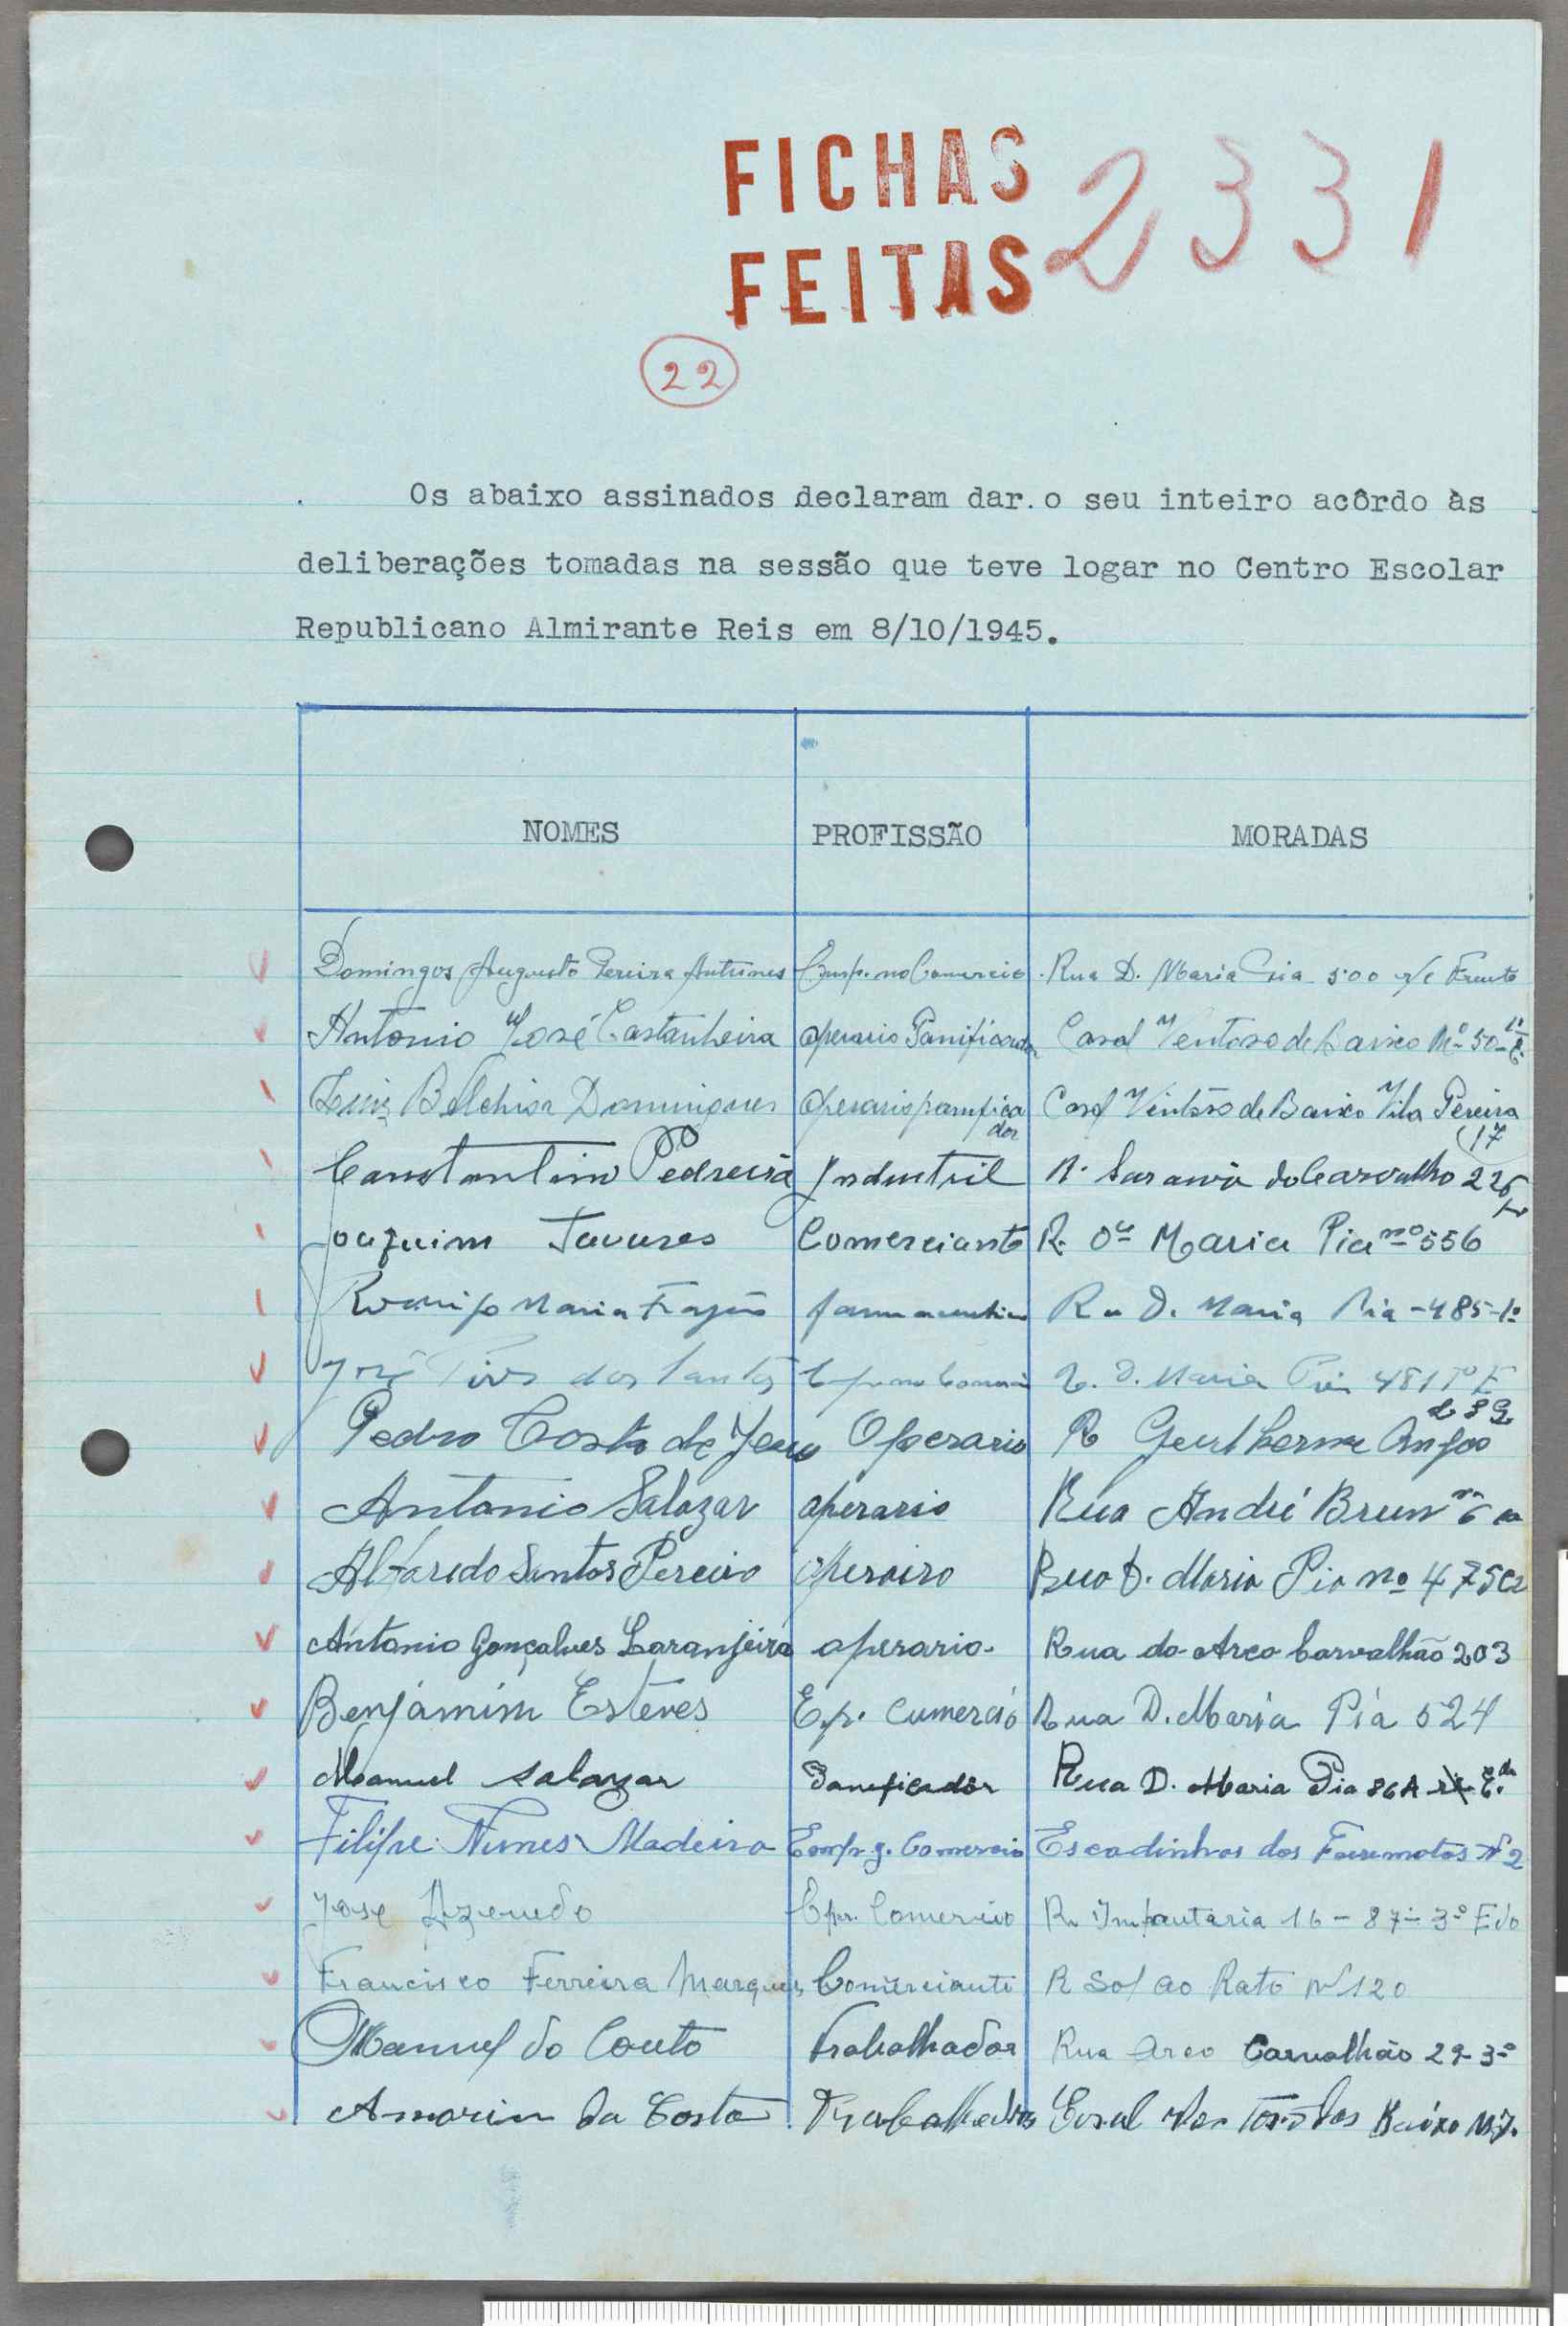 FICHAS 2331
FEITAS
22
Os abaixo assinados declaram dar.o seu inteiro acôrdo às
deliberações tomadas na sessão que teve logar no Centro Escolar
Republicano Almirante Reis em 8/10/1945.
NOMES PROFISSÃO MORADAS
Domingos Augusto Pereira Antunes Emp. no Comercio Rua D. Maria Pia 500 r/c Frente
Antonio José Castanheira operario Panificador Casal Ventoso de Baixo Nº 50
Luiz Belchior Domingues operario panificador Casal Ventoso de Baixo Vila Pereira 17
Constantino Pedreira Industril R. Saraiva de Carvalho 226
Joaquim Tavares Comerciante R. Dª Maria Pia nº 556
Maria farmaceutico Rua D. Maria Pia - 485-1º
José Pires dos Santos R. D. Maria Pia 481
Pedro Costa de Jesus Operario R Guilherme Anjos
Antonio Salazar operario Rua André Brun nº 6
Alfaredo Santos Pereira operairo Rua D. Maria Pia nº 475
Antonio Gonçalves Laranjeira operario. Rua do Arco Carvalhão 203
Benjàmim Estêves E.p. Cumercio Rua D. Maria Pia 524
Manuel Salazar Paneficadôr Rua D. Maria Pia 86A
Filipe Nunes Madeira Empr.g. Comercio Escadinhas dos Nº 2
José Azevedo Comercio R. Infantaria 16 - 87 - 3º Edo
Francisco Ferreira Marques Comerciante R Sol ao Rato Nº 120
Manuel do Couto Trabalhador Rua Arco Carvalhão 29-3º
Amorim da Costa Trabalhador Baixo